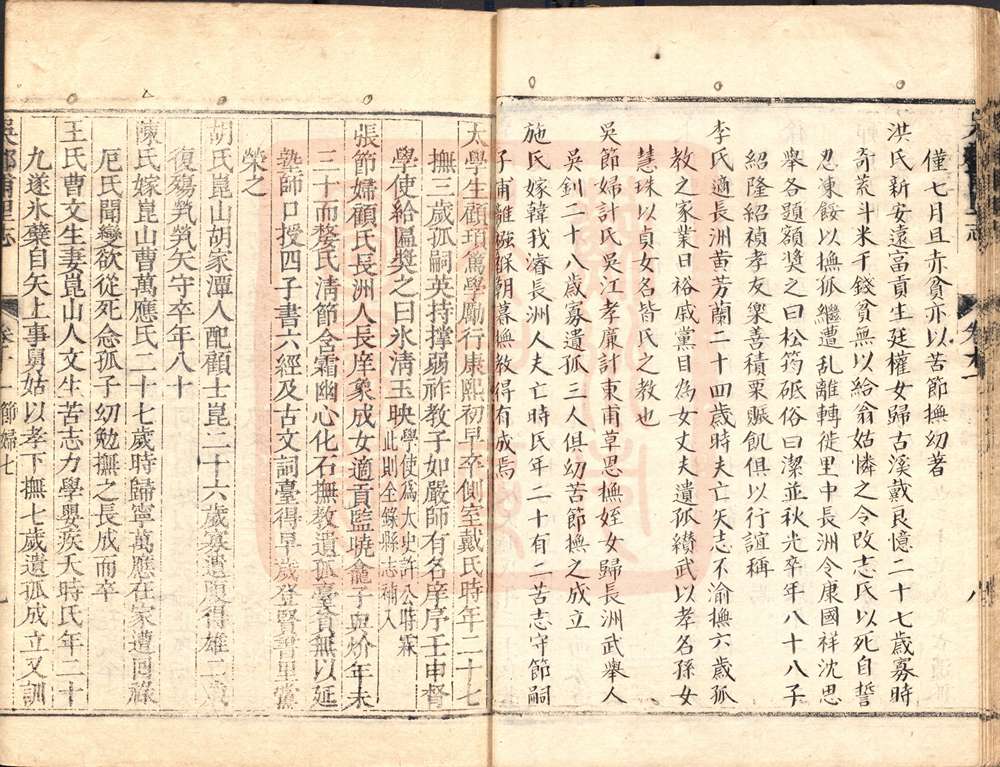 僅七月且赤貧亦以苦節撫幼著
洪氏新安遠富貢生廷權女歸古溪戴艮憶二十七歲寡時
奇荒斗米千錢貧無以給翁姑憐之令改志氏以死自誓
忍凍餒以撫孤繼遭亂離轉徙里中長洲令康國祥沈思
舉各題額獎之曰松筠砥俗曰潔並秋光卒年八十八子
紹隆紹禎孝友樂善積粟賑飢俱以行誼稱
李氏適長洲黃芳蘭二十四歲時夫亡矢志不渝撫六歲孤
教之家業日裕戚黨目為女丈夫遺孤纘武以孝名孫女
慧珠以貞女名皆氏之教也
吳節婦計氏吳江孝廉計東甫草恩撫姪女歸長洲武舉人
吳釗二十八歲寡遺孤三人俱幼苦節撫之成立
施氏嫁韓我濬長洲人夫亡時氏年二十有二苦志守節嗣
子甫離襁褓朝暮撫教得有成焉
太學生顧頊篤學勵行康熙初早卒側室戴氏時年二十七
撫三歲孤嗣英持撐弱祚教子如嚴師有名庠序壬申督
學使給匾獎之曰氷淸玉映學使爲太史許公時霖此則全錄縣志補入
張節婦顧氏長洲人長庠象成女適貢監曉龕子與炌年未
三十而嫠氏淸節含霜幽心化石撫教遺孤臺貧無以延
塾師口授四子書六經及古文詞臺得早歲登賢書里黨
榮之
胡氏崑山胡家潭人配顧士崑二十六歲寡遺腹得雄二歲
復殤煢煢矢守卒年八十
陳氏嫁崑山曹萬應氏二十七歲時歸寧萬應在家遭囘祿
厄氏聞變欲從死念孤子幼勉撫之長成而卒
王氏曹文生妻崑山人文生苦志力學嬰疾夭時氏年二十
九遂氷櫱自矢上事舅姑以孝下撫七歲遺孤成立又訓
吳郡甫里志 卷十一 節婦七